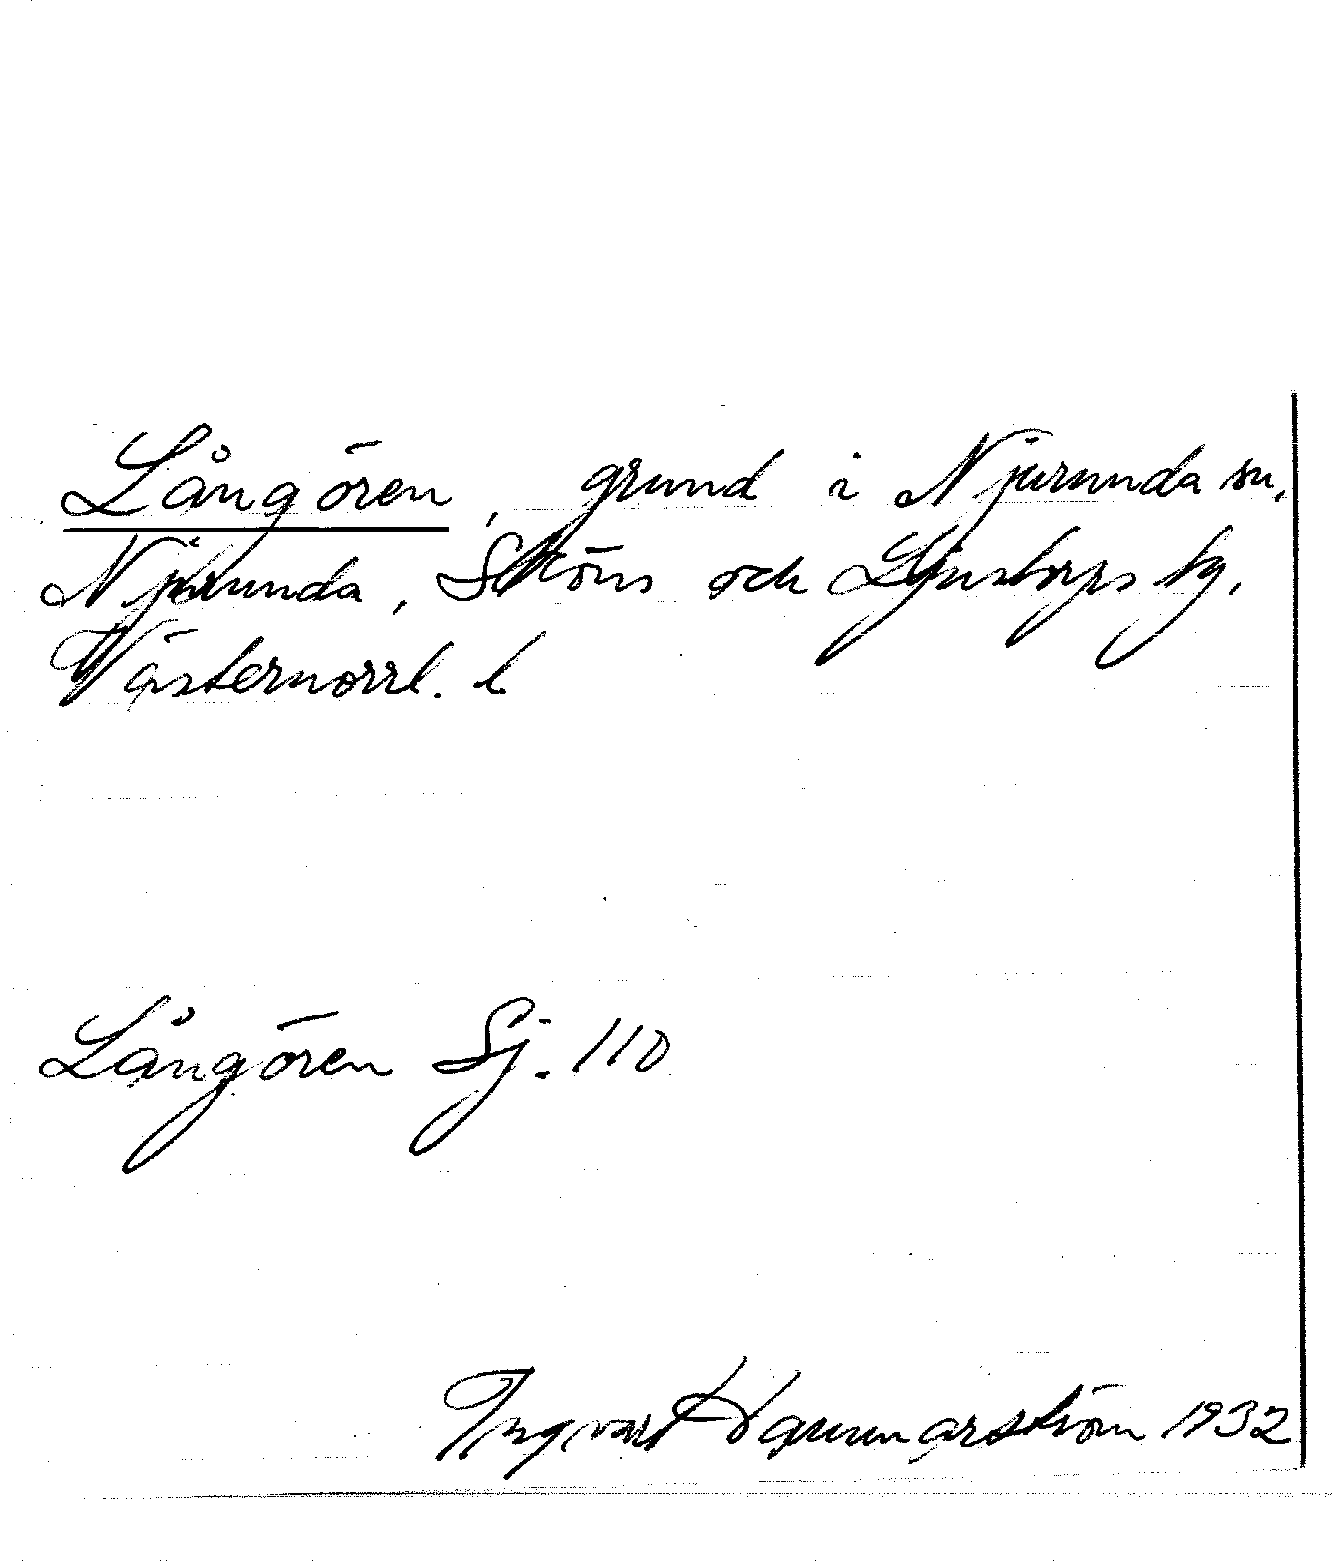 Långören, grund i Njurunda sn.
Njurunda, Sköns och Ljustorps tg,
Västernorrl. l
Långören Sj. 110
Ingvar Hammarström 1932